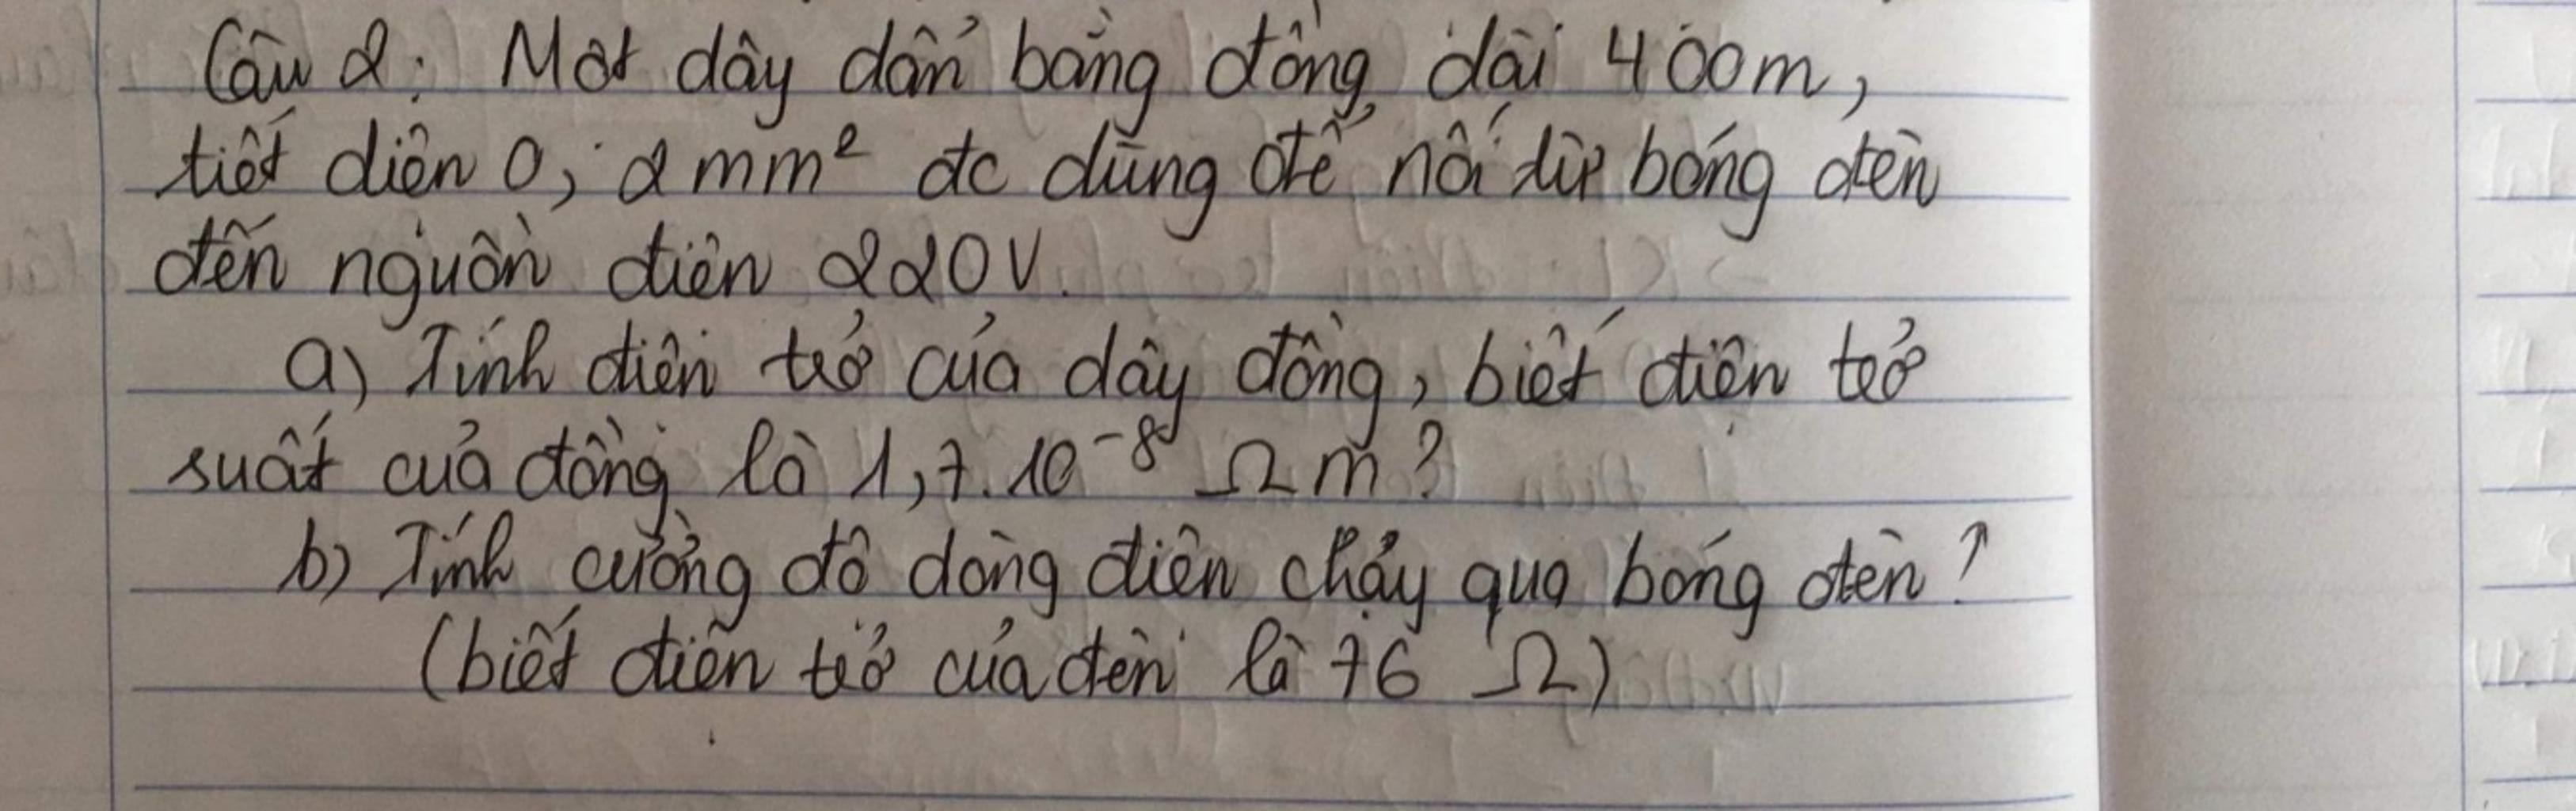 Câu 2: Một dây dẫn bằng đồng dài 400m,
tiết diện 0,2mm² đc dùng để nối từ bóng đèn
đến nguồn điện 220V.
a) Tính điện trở của dây đồng, biết điện trở
suất của đồng là 1,7.10⁻⁸ Ωm?
b) Tính cường độ dòng điện chảy qua bóng đèn?
(biết điện trở của đèn là 76 Ω)